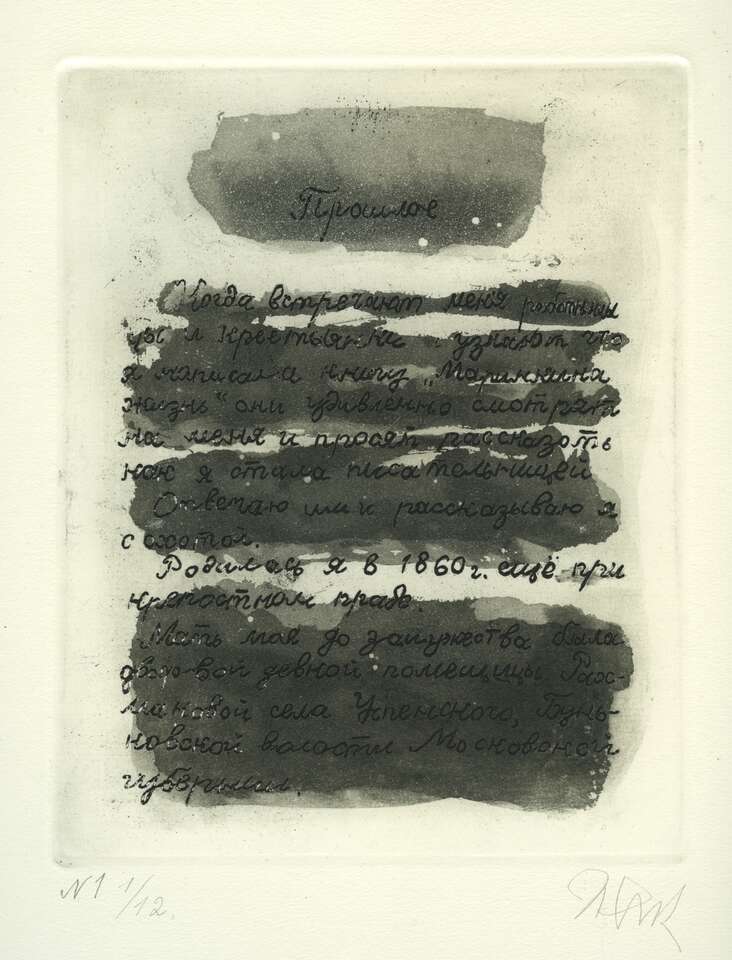 Прошлое
Когда встречают меня работни
цы и крестьянки и узнают что
я написала книгу „Маринкина
жизнь" они удивленно смотрят
на меня и просят рассказать
как я стала писательницей
Отвечаю им и рассказываю я
с охотой.
Родилась я в 1860 г. ещё при
крепостном праве.
Мать моя до замужества была
дворовой девкой помещицы Рах-
мановой села Успенского, Бунь-
ковской волости Московской
губернии.
N1 1/12.